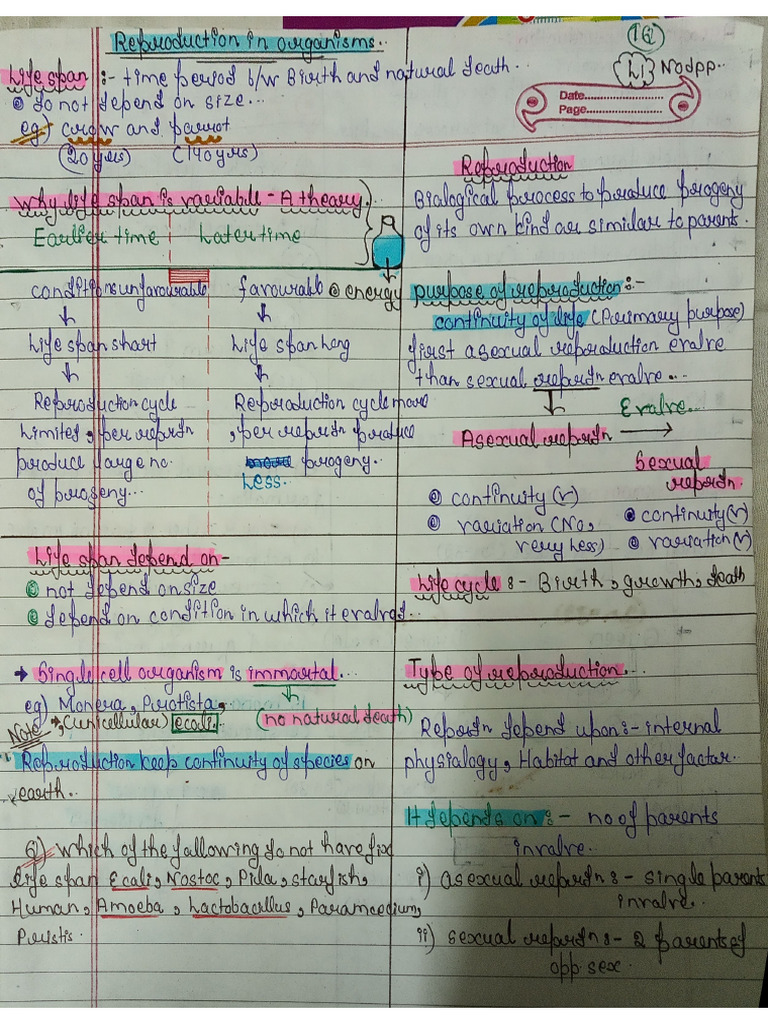 Reproduction in organisms..
16
L1 Nodpp..
Date..................
Page..................
Life span :- time period b/w Birth and natural death...
do not depend on size...
eg) crow and parrot
(20 yrs) (140 yrs)
Why life span is variable - A theory.
Earlier time Later time
conditions unfavourable favourable energy
Life span short Life span Long
Reproduction cycle Reproduction cycle more
Limited, per reprdn , per reprdn produce
produce large no. progeny..
of progeny... Less.
Life span depend on-
not depend on size
depend on condition in which it evalved...
Single cell organism is immortal...
eg) Monera, Protista,
(unicellular) ecoli.. (no natural death)
Note
Reproduction keep continuity of species on
earth..
Q) which of the following do not have fix
life span Ecoli, Nostoc, Pida, starfish,
Human, Amoeba, Lactobacillus, Paramoedium,
Pristis.
Reproduction
Biological process to produce progeny
of its own kind or similar to parents.
purpose of reproduction:-
continuity of life (Primary purpose)
first asexual reproduction evalve
than sexual reprdn evalve...
Evalve...
Asexual reprdn
Sexual
reprdn.
continuity (r)
variation (No, continuity (r)
very less) variation (r)
Life cycle :- Birth, growth, death
Type of reproduction...
Reprdn depend upon:- internal
physialogy, Habitat and other factor..
It depends on :- no of parents
invalve..
i) asexual reprdn :- single parents
invalve.
ii) sexual reprdn :- 2 parents of
opp sex.